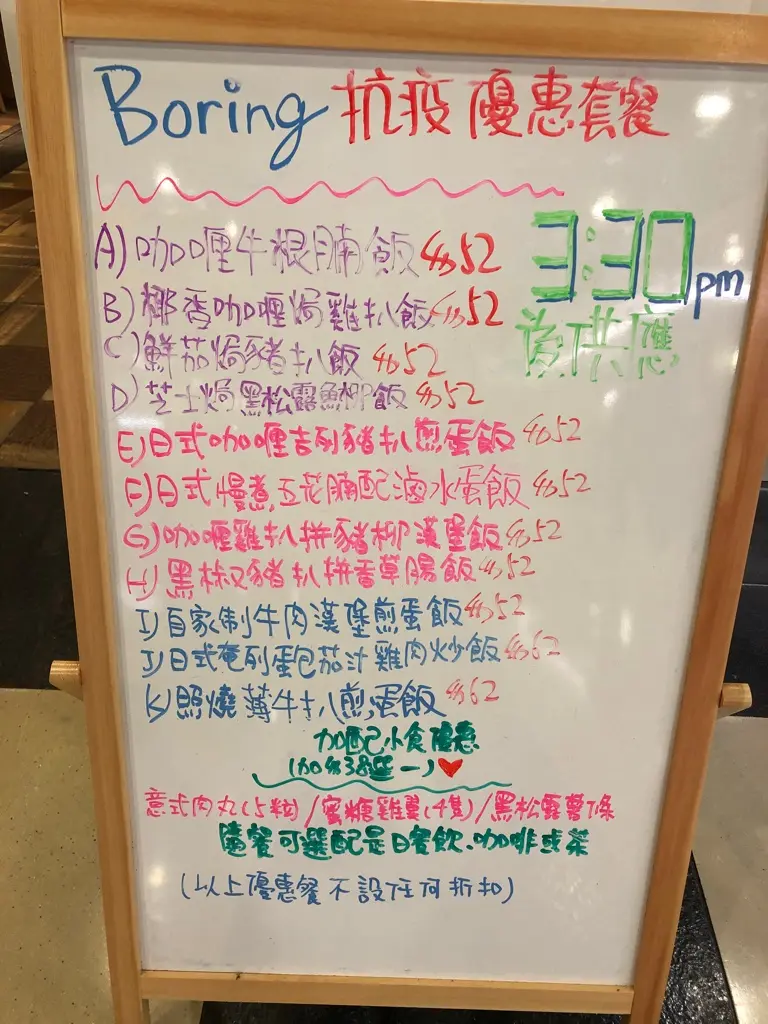 Boring 抗疫優惠套餐
3:30pm
後供應
A) 咖喱牛根腩飯 $52
B) 椰香咖喱焗雞扒飯 $52
C) 鮮茄焗豬扒飯 $52
D) 芝士焗黑松露魚柳飯 $52
E) 日式咖喱吉列豬扒煎蛋飯 $52
F) 日式慢煮五花腩配滷水蛋飯 $52
G) 咖喱雞扒拼豬柳漢堡飯 $52
H) 黑椒豬扒拼香草腸飯 $52
I) 自家制牛肉漢堡煎蛋飯 $52
J) 日式奄列蛋包茄汁雞肉炒飯 $62
K) 照燒薄牛扒煎蛋飯 $62
加配小食優惠
(加$38選一)
意式肉丸(5粒)/蜜糖雞翼(4隻)/黑松露薯條
隨餐可選配是日餐飲、咖啡或茶
(以上優惠餐不設任何折扣)